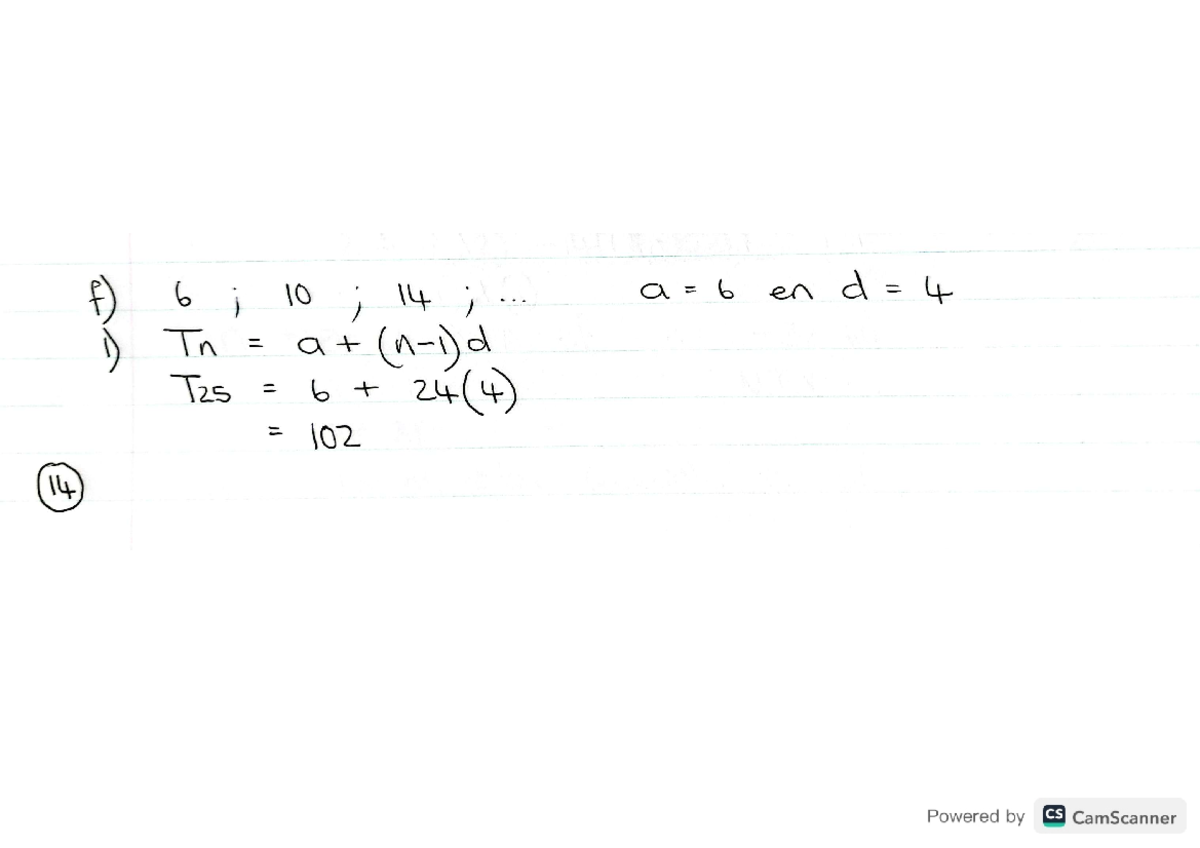 f) 6 ; 10 ; 14 ; ... a = 6 en d = 4
i) Tn = a + (n-1)d
T25 = 6 + 24(4)
= 102
14
Powered by CS CamScanner